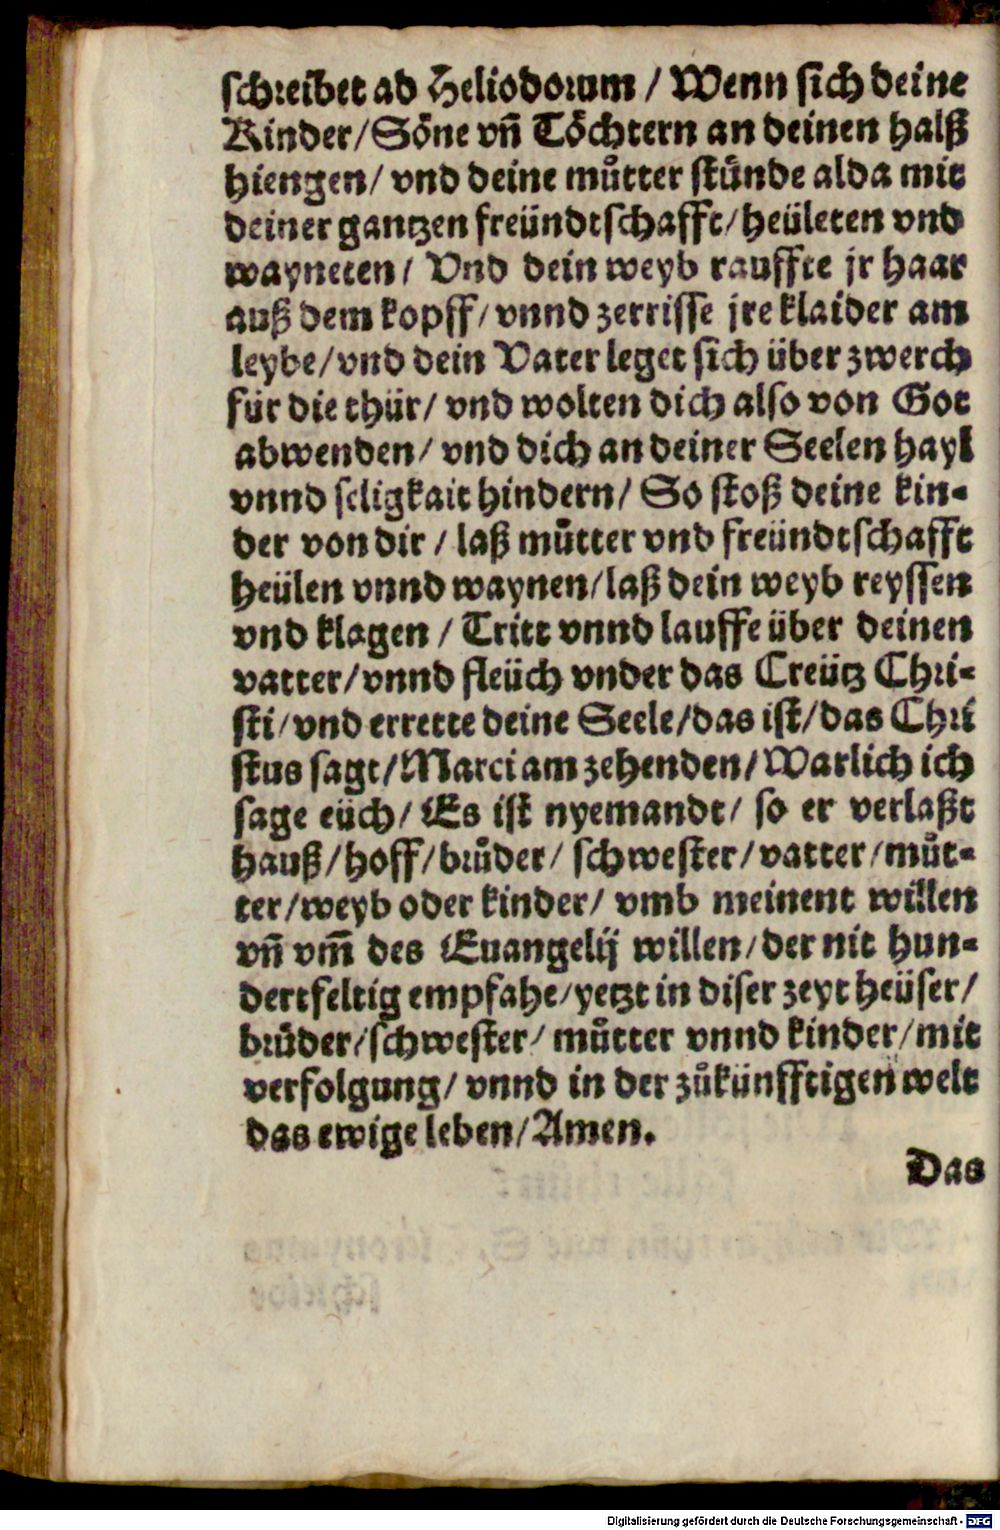 schreibet ad Heliodorum / Wenn sich deine
Kinder/Söne vñ Töchtern an deinen halß
hiengen/ vnd deine můtter stünde alda mit
deiner gantzen freündtschafft/heületen vnd
wayneten/ Vnd dein weyb rauffte jr haar
auß dem kopff/vnnd zerrisse jre klaider am
leybe/vnd dein Vater leget sich über zwerch
für die thür/ vnd wolten dich also von Got
abwenden/ vnd dich an deiner Seelen hayl
vnnd seligkait hindern/ So stoß deine kin-
der von dir / laß můtter vnd freündtschafft
heülen vnnd waynen/laß dein weyb reyssen
vnd klagen / Tritt vnnd lauffe über deinen
vatter/vnnd fleüch vnder das Creütz Chri-
sti/vnd errette deine Seele/das ist/das Chri
stus sagt/Marci am zehenden/Warlich ich
sage eüch/ Es ist nyemandt/ so er verlaßt
hauß/hoff/brůder/ schwester/vatter/můt-
ter/weyb oder kinder/ vmb meinent willen
vñ vm̃ des Euangelij willen/der nit hun-
dertfeltig empfahe/yetzt in diser zeyt heüser/
brůder/schwester/ můtter vnnd kinder/mit
verfolgung/ vnnd in der zůkünfftigen welt
das ewige leben/Amen.
Das
Digitalisierung gefördert durch die Deutsche Forschungsgemeinschaft - DFG